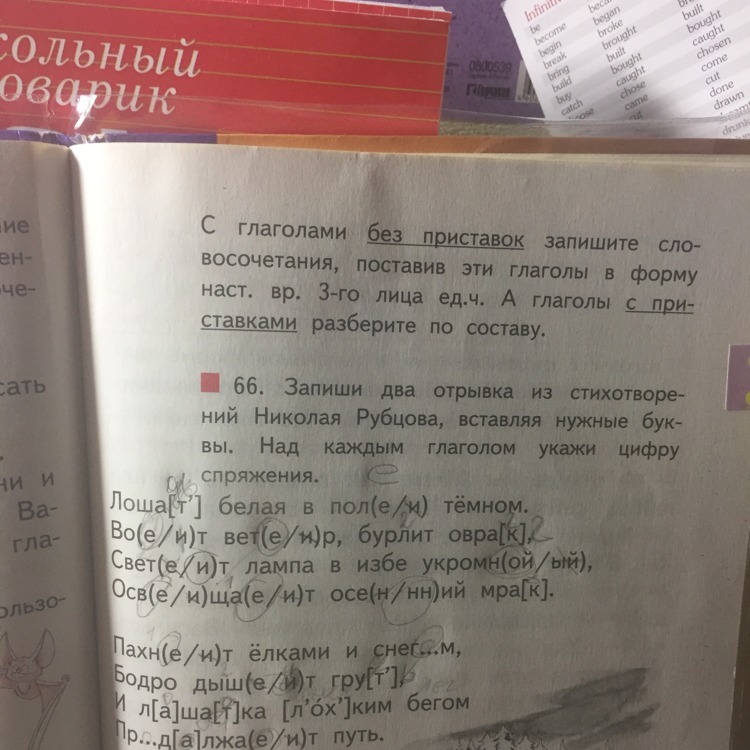 ольный
оварик
0800539
Infinitive
be
become
begin
break
bring
build
buy
catch
began
broke
brought
built
bought
caught
chose
came
cut
built
bought
caught
chosen
come
cut
done
drawn
drunk
ние
ен-
че-
сать
ни и
Ва-
гла-
ользо-
С глаголами без приставок запишите сло-
восочетания, поставив эти глаголы в форму
наст. вр. 3-го лица ед.ч. А глаголы с при-
ставками разберите по составу.
66. Запиши два отрывка из стихотворе-
ний Николая Рубцова, вставляя нужные бук-
вы. Над каждым глаголом укажи цифру
спряжения.
е
Лоша[т'] белая в пол(е/и) тёмном.
Во(е/и)т вет(е/и)р, бурлит овра[к],
Свет(е/и)т лампа в избе укромн(ой/ый),
Осв(е/и)ща(е/и)т осе(н/нн)ий мра[к].
Пахн(е/и)т ёлками и снег...м,
Бодро дыш(е/и)т гру[т'],
И л[а]ша[т]ка [л'о́х']ким бегом
Пр...д[а]лжа(е/и)т путь.